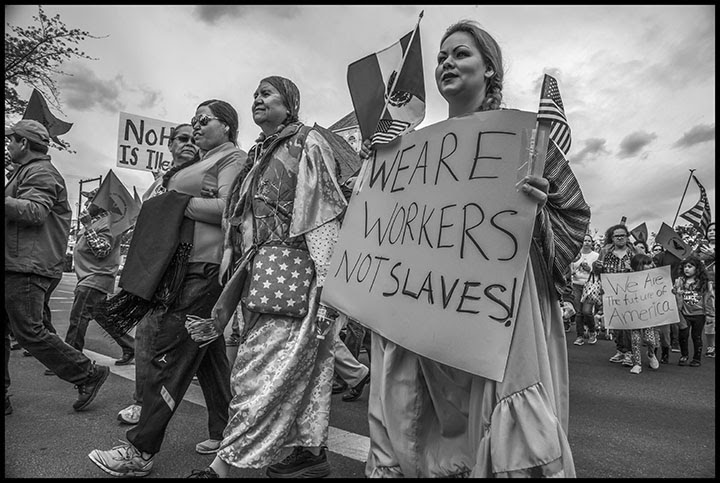 IS Ille
WE ARE
WORKERS
NOT SLAVES!
We Are
The future of
America